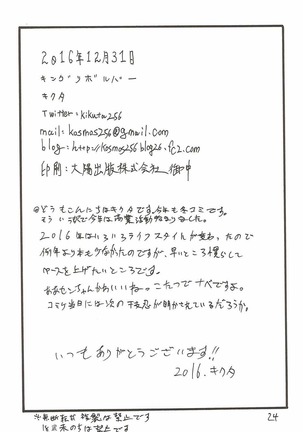 2016年12月31日
キングリボルバー
キクタ
Twitter:kikuta256
mail:kosmos256@gmail.com
blog:http://kosmos256.blog26.fc2.com
印刷:大陽出版株式会社 御中
どうもこんにちはキクタです。今年も冬コミです。
2016年はいろいろライフスタイルが変わったので
何年よりも少なかたのですが、早いところ慣らして
ペースを上げたいところです。
かわいいね。こたつでナベですよ。
コミケ当日には次の
いつもありがとうございます!!
2016.キクタ
24
※無断転載 複製は禁止です
は禁止です